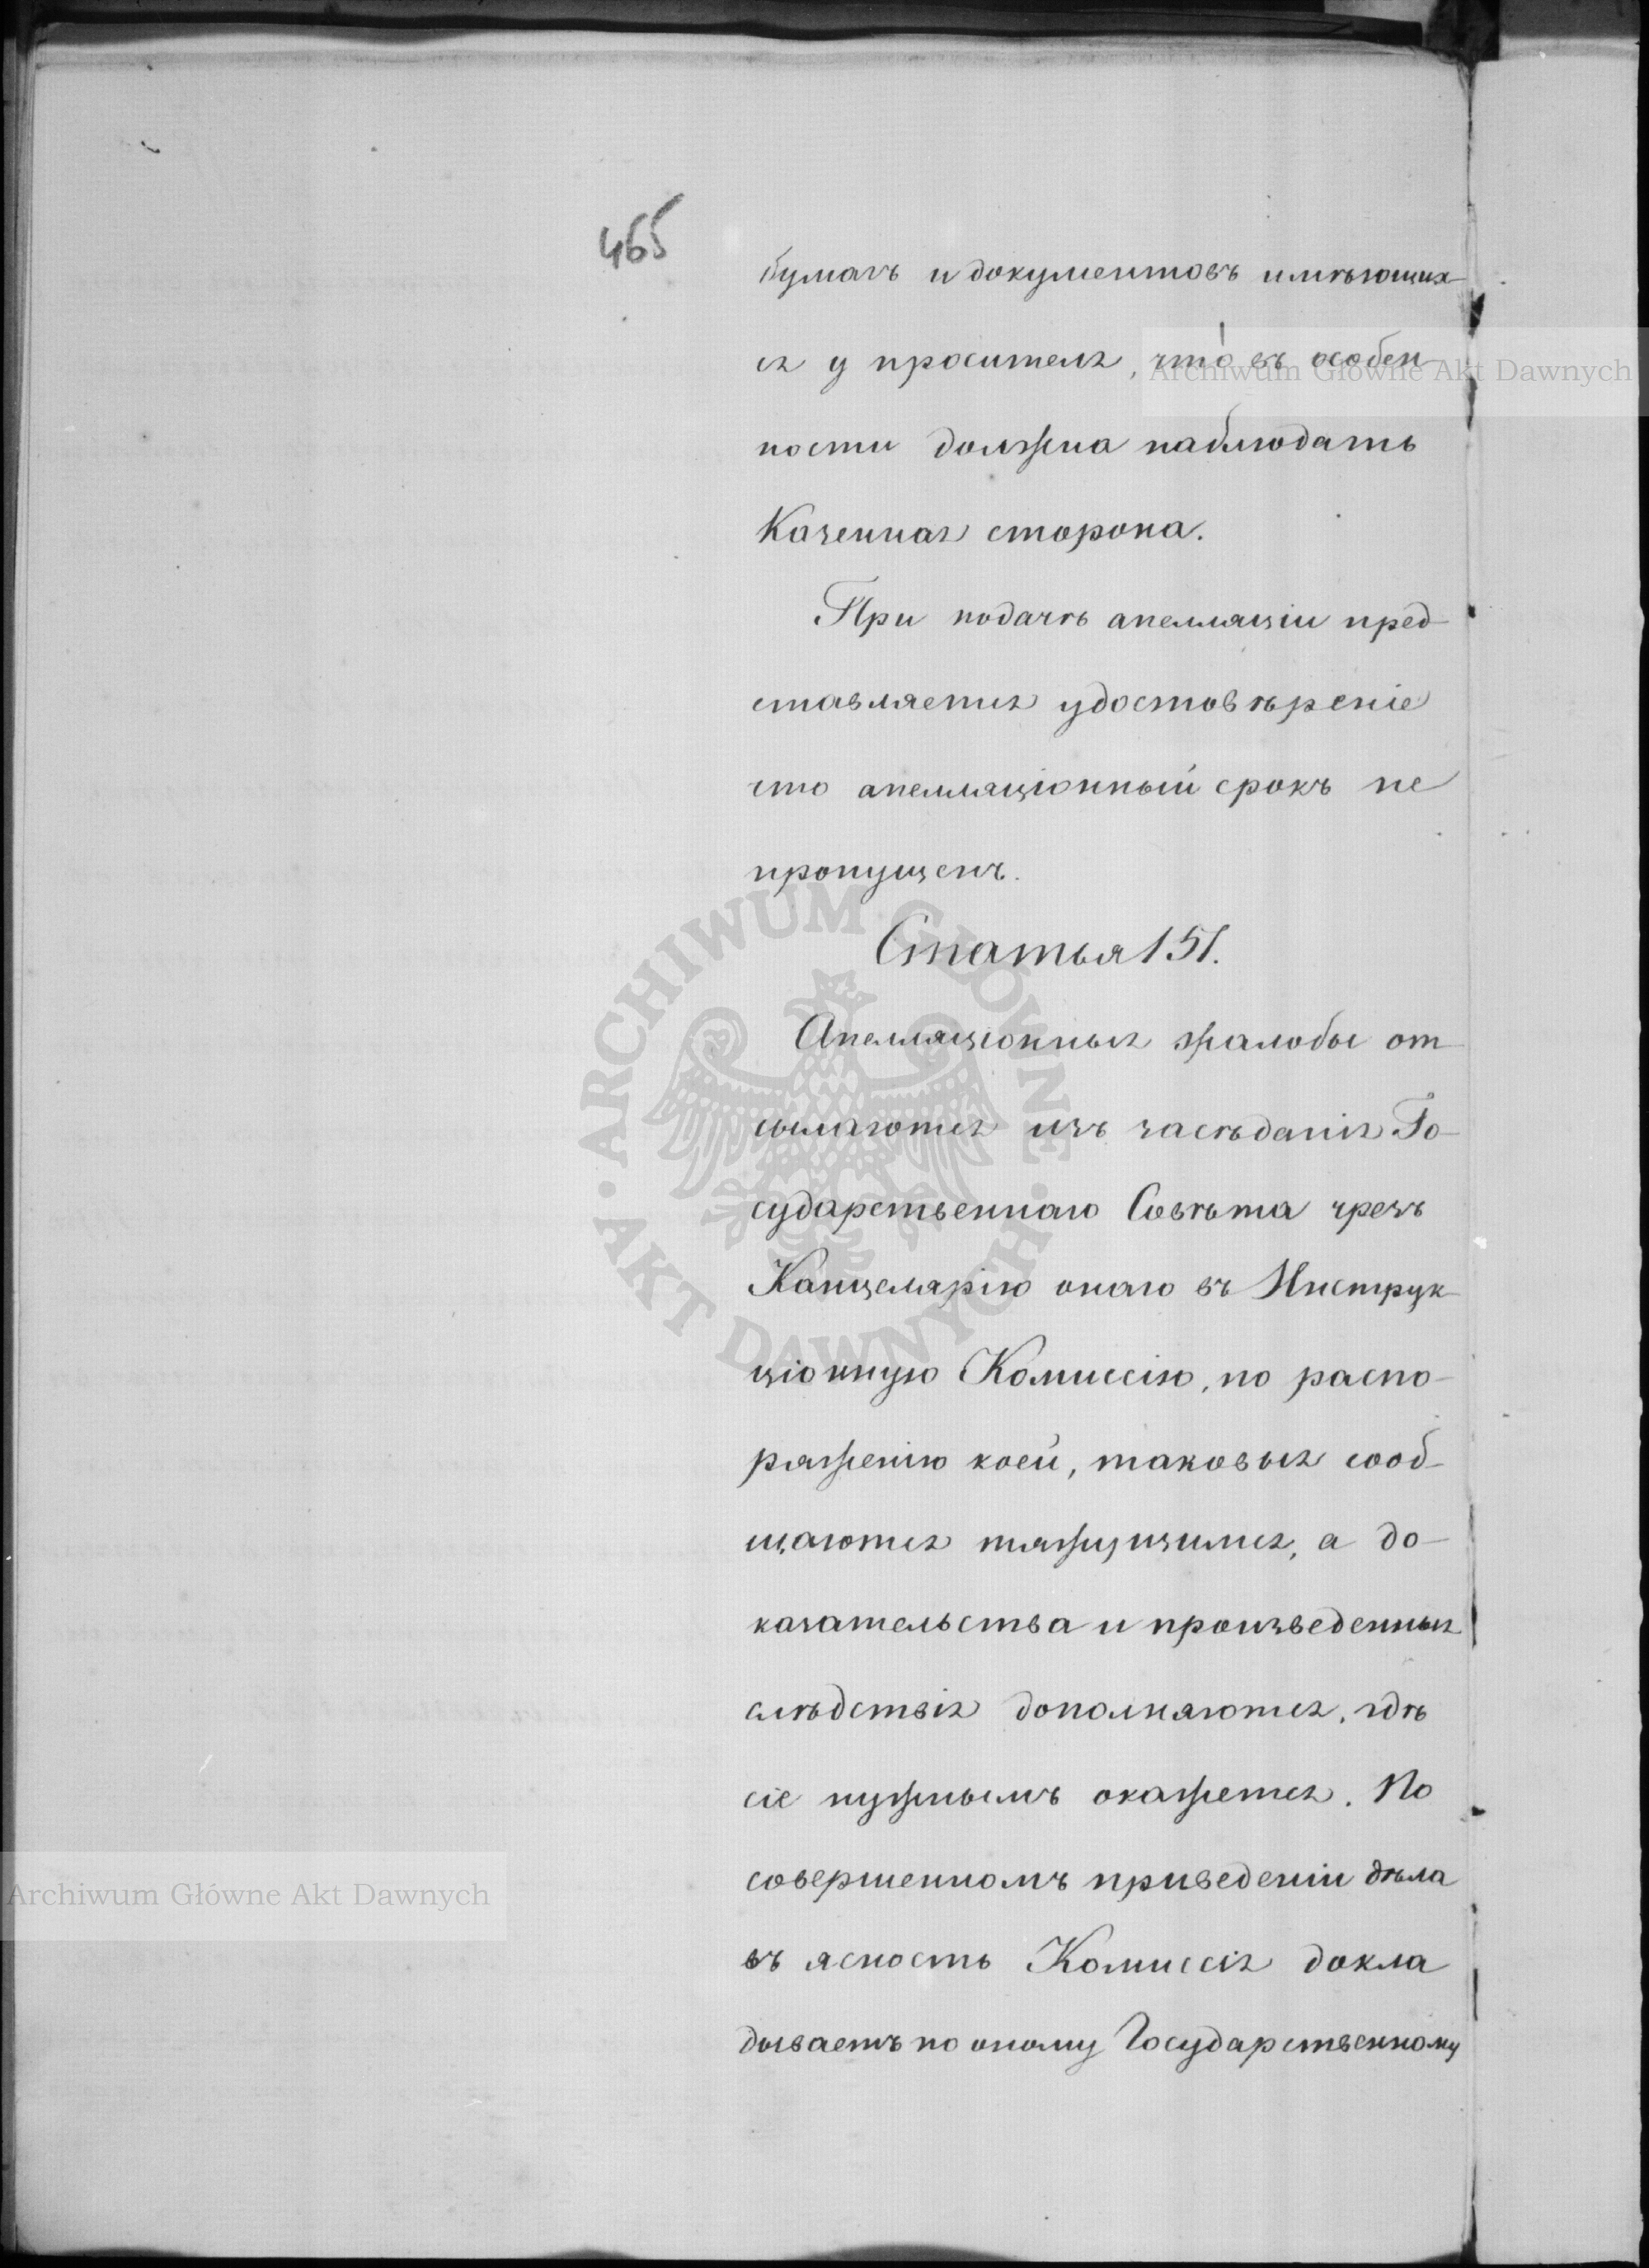 465
бумагъ и документовъ имѣющих-
ся у просителя, что́ въ особен-
ности должна наблюдать
Казенная сторона.
При подачѣ апелляціи пред-
ставляется удостовѣреніе
что апелляціонный срокъ не
пропущенъ.
Статья 151.
Апелляціонныя жалобы от-
сылаются изъ засѣданія Го-
сударственнаго Совѣта чрезъ
Канцелярію онаго въ Инструк-
ціонную Комиссію, по распо-
ряженію коей, таковыя сооб-
щаются тяжущимся, а до-
казательства и произведенныя
слѣдствія дополняются, гдѣ
сіе нужнымъ окажется. По
совершенномъ приведеніи дѣла
въ ясность Комиссія докла
дываетъ по оному Государственному
Archiwum Główne Akt Dawnych
ARCHIWUM GŁÓWNE · AKT DAWNYCH ·
Archiwum Główne Akt Dawnych